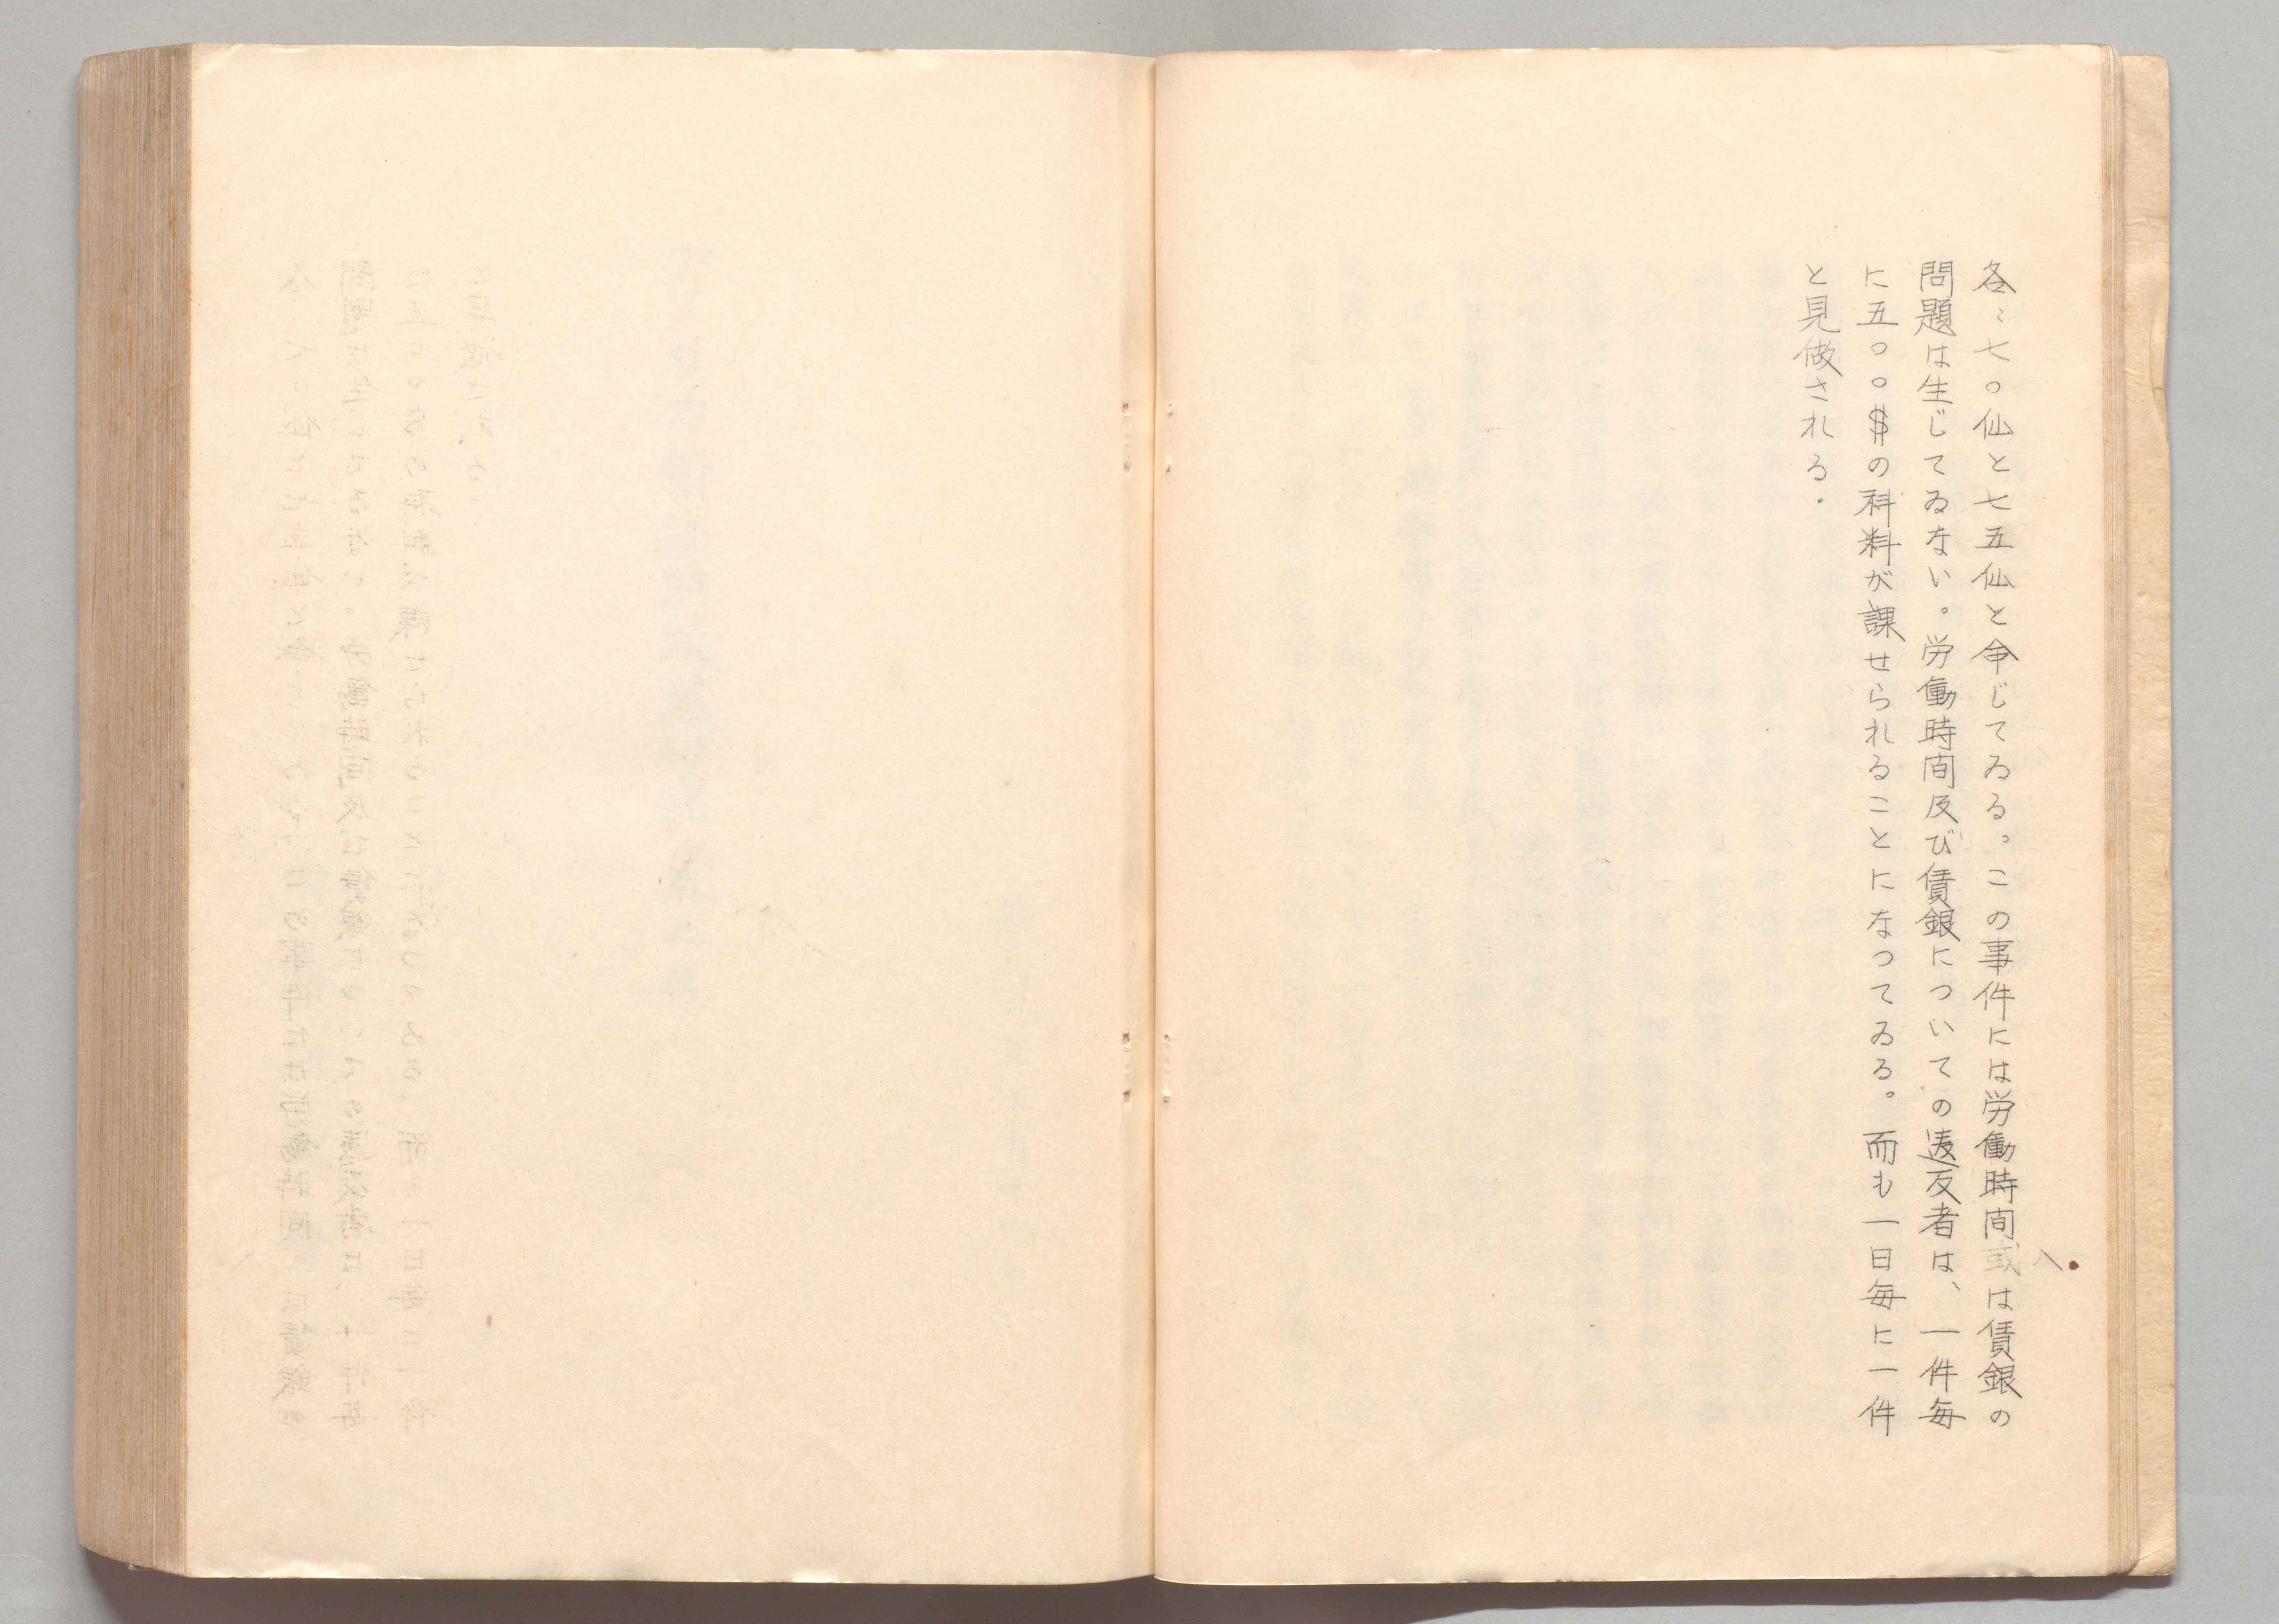 各〻七〇仙と七五仙と命じてゐる。この事件には労働時間或は賃銀の
問題は生じてゐない。労働時間及び賃銀についての違反者は、一件毎
に五〇〇$の科料が課せられることになつてゐる。而も一日毎に一件
と見做される.